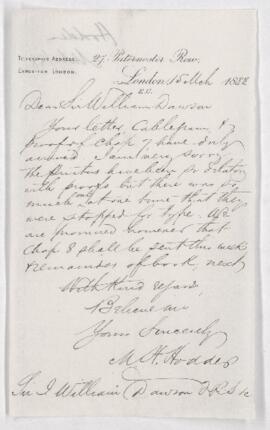 Hodder
TELEGRAPHIC ADDRESS:
27, Paternoster Row,
London 15 Mch 1888
E.C.
Dear Sir William Dawson
Your letter Cablegram &
proof of Chap 7 have only
arrived I am very sorry
the printers have been so dilatory
with proofs but there was so
much set at one time that they
were stopped for type. We
are promised however that
Chap 8 shall be sent this week
& remainder of book next
With Kind regards,
Believe me
Yours Sincerely
M. H. Hodder
Sir J William Dawson F.R.S &c